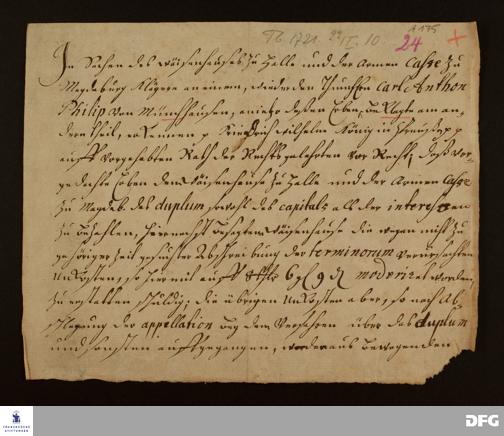 Tb. 1721. 22/I. 10
A 175
24
In Sachen des Waisenhauses zu Halle und der Armen Casse zu
Magdeburg Klägere an einem, wieder den Carl Anthon
Philip von Münchhausen, anietzo deßen Erben, Beklagte am an-
dern theil, erkennen Friedrich Wilhelm König in Preußen p
auff vorgehabten Rath der Rechtsgelehrten vor Recht; daß vor-
gedachte Erben dem Waisenhause zu Halle und der Armen Casse
zu Magdeb. das duplum sowohl des capitals alß der interessen
zu bezahlen, hiernechst besagtem Waisenhause die wegen nicht zu
gehöriger Zeit gesuchter Abschreibung der terminorum verursachten
Unkosten, so hiermit auff 6 9 moderiret worden,
zu erstatten schuldig; die übrigen Unkosten aber, so nach Ab-
schlagung der appellation bey dem Verfahren über das duplum
und sonsten auffgegangen, werden aus bewegenden
FRANCKESCHE STIFTUNGEN
DFG